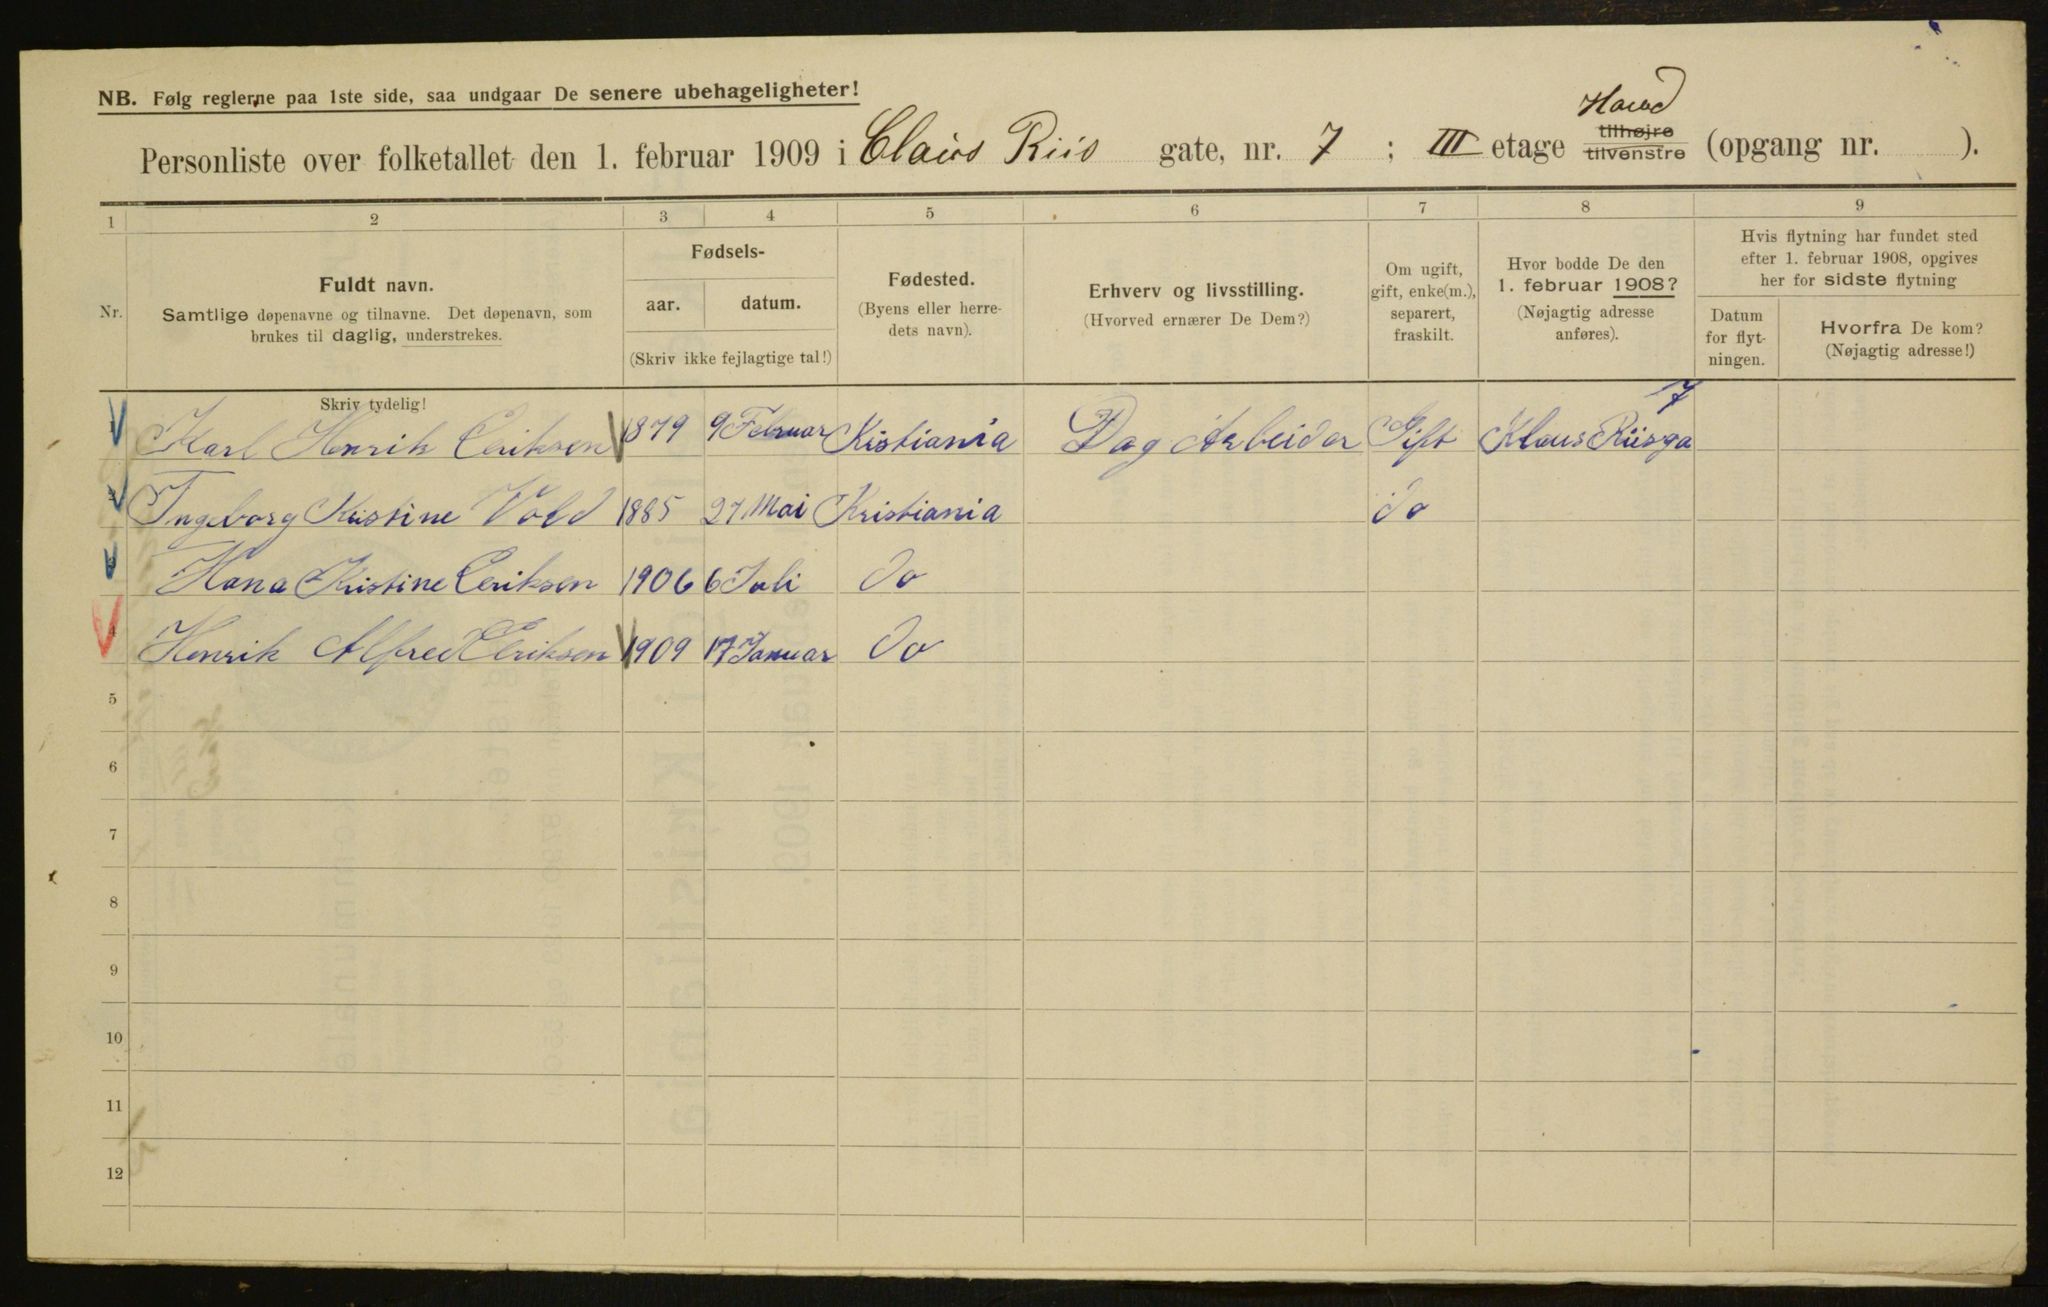 NB. Følg reglerne paa 1ste side, saa undgaar De senere ubehageligheter!
Havd
Personliste over folketallet den 1. februar 1909 i Claus Riis gate, nr. 7 ; III etage tilhøjre tilvenstre (opgang nr. ).
1 2 3 4 5 6 7 8 9
Nr.
Fuldt navn.
Samtlige døpenavne og tilnavne. Det døpenavn, som
brukes til daglig, understrekes.
Fødsels-
aar. datum.
(Skriv ikke fejlagtige tal!)
Fødested.
(Byens eller herre-
dets navn).
Erhverv og livsstilling.
(Hvorved ernærer De Dem?)
Om ugift,
gift, enke(m.),
separert,
fraskilt.
Hvor bodde De den
1. februar 1908?
(Nøjagtig adresse
anføres).
Hvis flytning har fundet sted
efter 1. februar 1908, opgives
her for sidste flytning
Datum
for flyt-
ningen.
Hvorfra De kom?
(Nøjagtig adresse!)
Skriv tydelig!
7
1 Karl Henrik Eriksen 1879 9 Februar Kistiania Dag Arbeider Gift Klaus Riisga
2 Ingeborg Kristine Vold 1885 27 Mai Kristiania do
3 Hana Kristine Eriksen 1906 6 Juli do
4 Henrik Alfred Eriksen 1909 17 Januar do
5
6
7
8
9
10
11
12